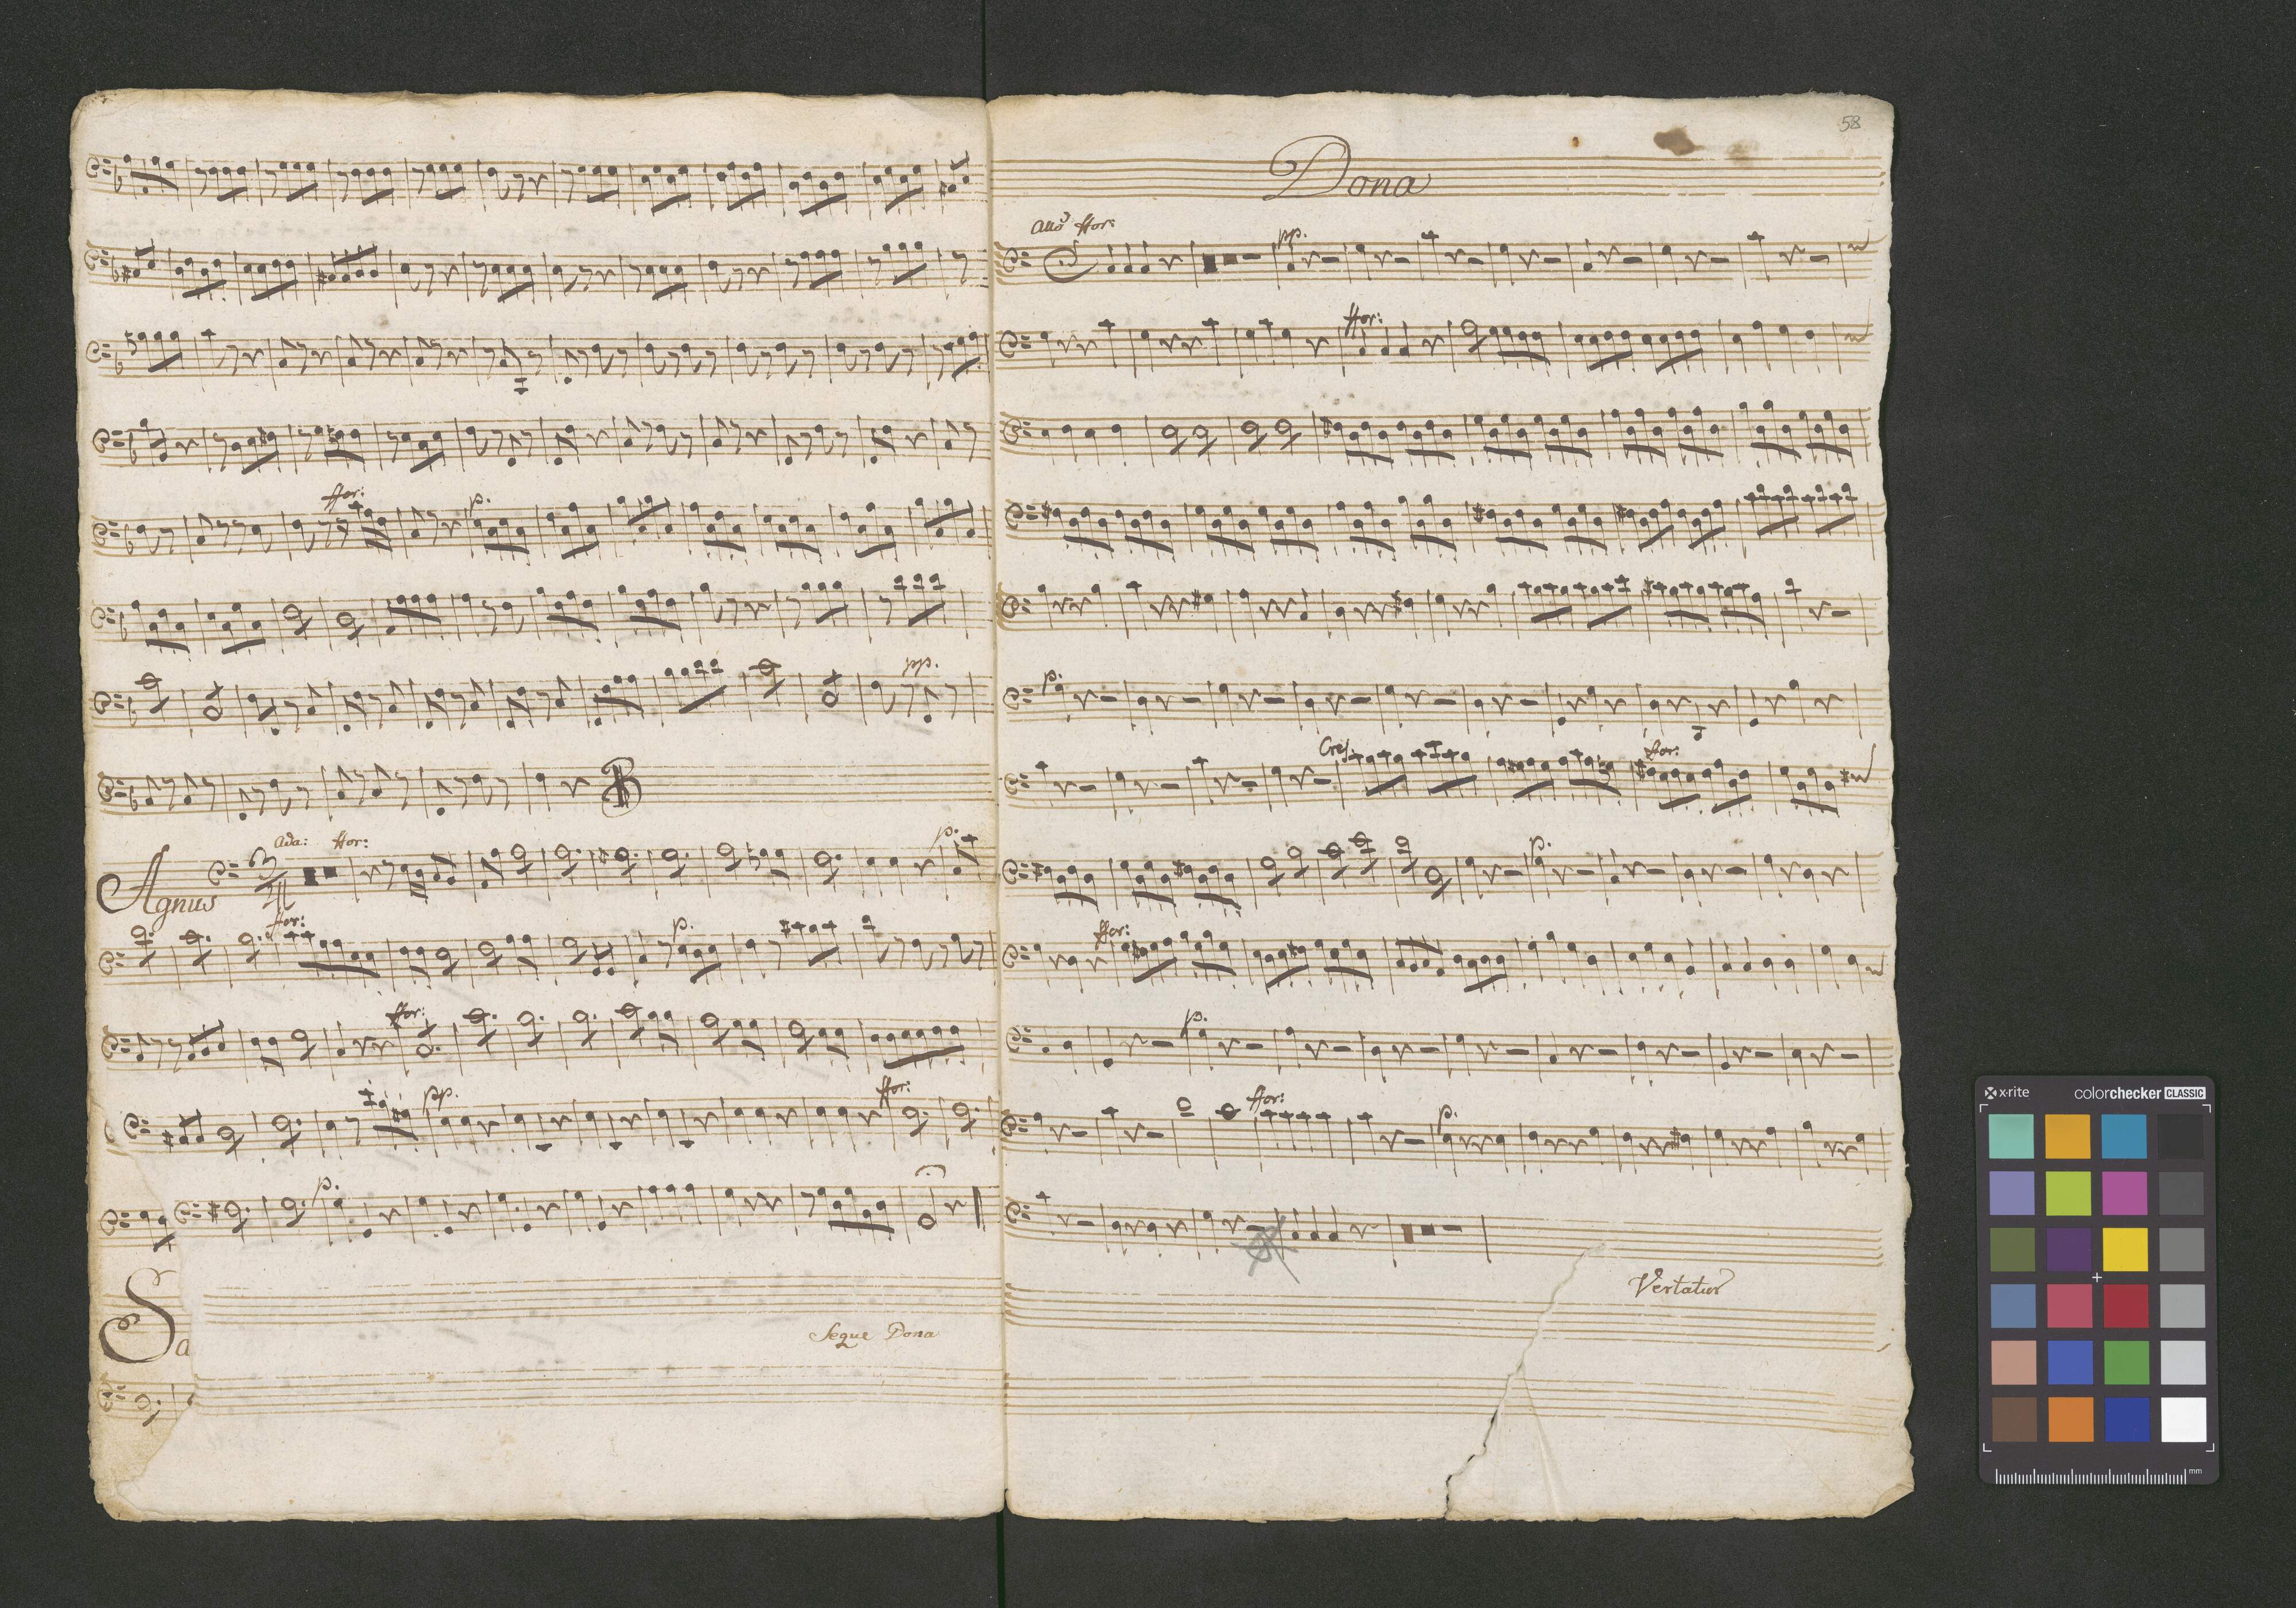 for:
p.
pp.
Ada: for:
p.
Agnus
for:
p.
for:
pp.
for:
p.
Sa
Seque Dona
58
Dona
Allo for:
pp.
for:
p.
Cres.
for:
p.
for:
p.
for:
p.
Vertatur
x-rite
colorchecker CLASSIC
mm